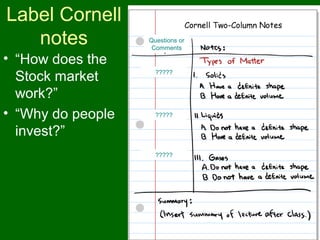 Label Cornell
notes
• “How does the
Stock market
work?”
• “Why do people
invest?”
Cornell Two-Column Notes
Questions or
Comments
Notes:
Types of Matter
?????
I. Solids
A. Have a definite shape
B. Have a definite volume
?????
II. Liquids
A. Do not have a definite shape
B. Do have a definite volume.
?????
III. Gases
A. Do not have a definite shape
B. Do not have a definite volume
Summary:
(Insert summary of lecture after class.)